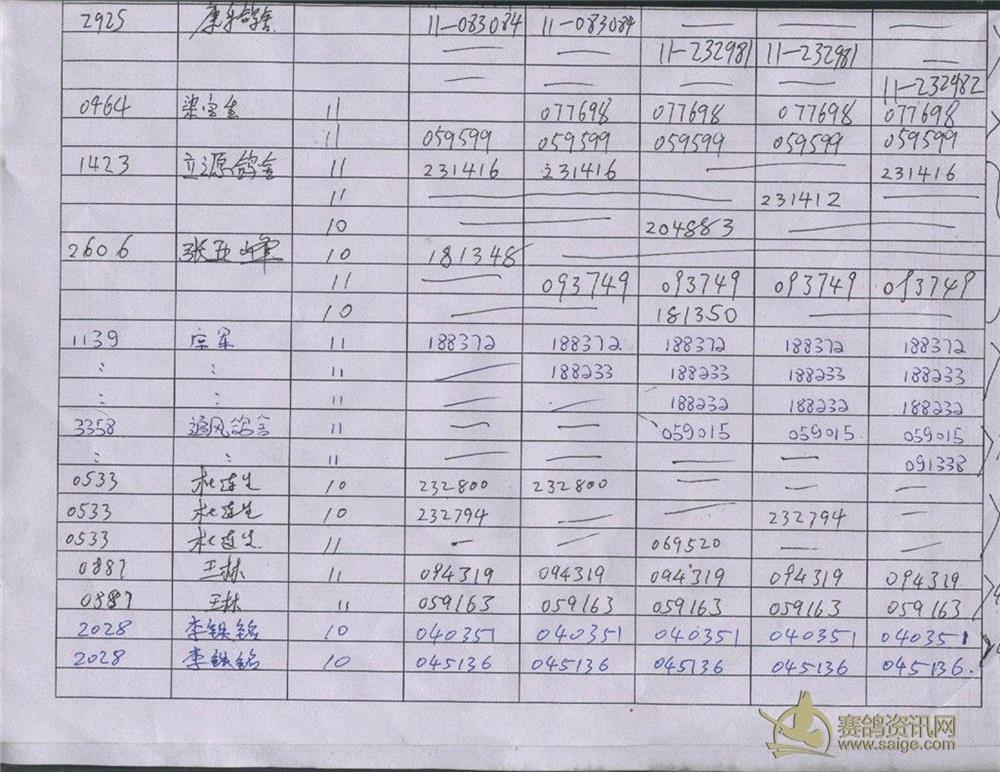 2925 康乐鸽舍 11-083084 11-083084 — — —
— — 11-232981 11-232981 —
— — — — 11-232982
0464 梁宝生 11 077698 077698 077698 077698
11 059599 059599 059599 059599 059599
1423 立源鸽舍 11 231416 231416 — — 231416
11 — — — 231412 —
10 — — 204883 — —
2606 张亚峰 10 181348 —
11 — 093749 093749 093749 093749
10 — 181350 —
1139 11 188372 188372 188372 188372 188372
: : 11 — 188233 188233 188233 188233
: : 11 — — 188232 188232 188232
3358 追风鸽舍 11 — — 059015 059015 059015
: : 11 — — — — 091338
0533 杜连生 10 232800 232800 — — —
0533 杜连生 10 232794 — — 232794 —
0533 杜连生 11 — — 069520 — —
0887 王林 11 094319 094319 094319 094319 094319
0887 王林 11 059163 059163 059163 059163 059163
2028 李铁铭 10 040351 040351 040351 040351 040351
2028 李铁铭 10 045136 045136 045136 045136 045136.
赛鸽资讯网
www.saige.com